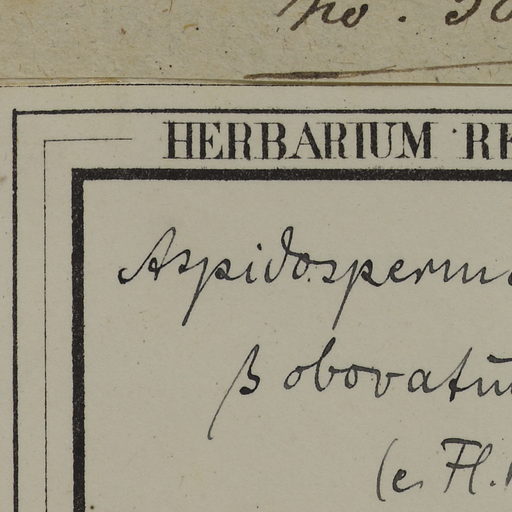 No. 
HERBARIUM
Aspidosperm
β obovatu
(e. Fl.